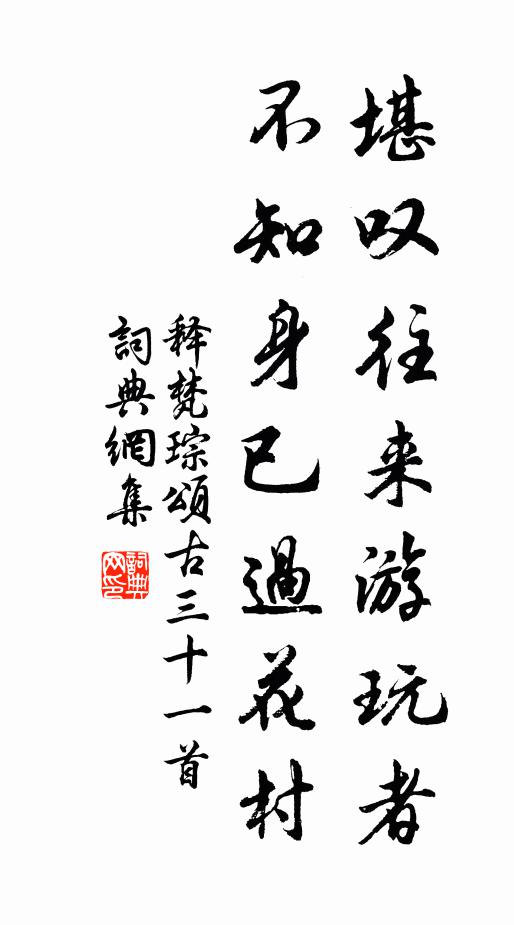 堪叹往来游玩者
不知身已過花村
释梵琮頌古三十一首
詞典網集
詞典网印